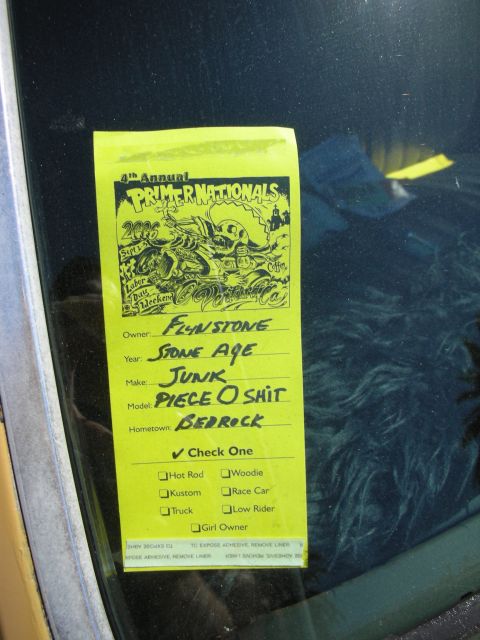 4th Annual
PRIMER NATIONALS
2006
Sept 1-3
Labor
Day
Weekend
Ventura Ca.
Owner: FLYNSTONE
Year: STONE AGE
Make: JUNK
Model: PIECE O SHIT
Hometown: BEDROCK
✓ Check One
❏Hot Rod ❏Woodie
❏Kustom ❏Race Car
❏Truck ❏Low Rider
❏Girl Owner
TO EXPOSE ADHESIVE, REMOVE LINER